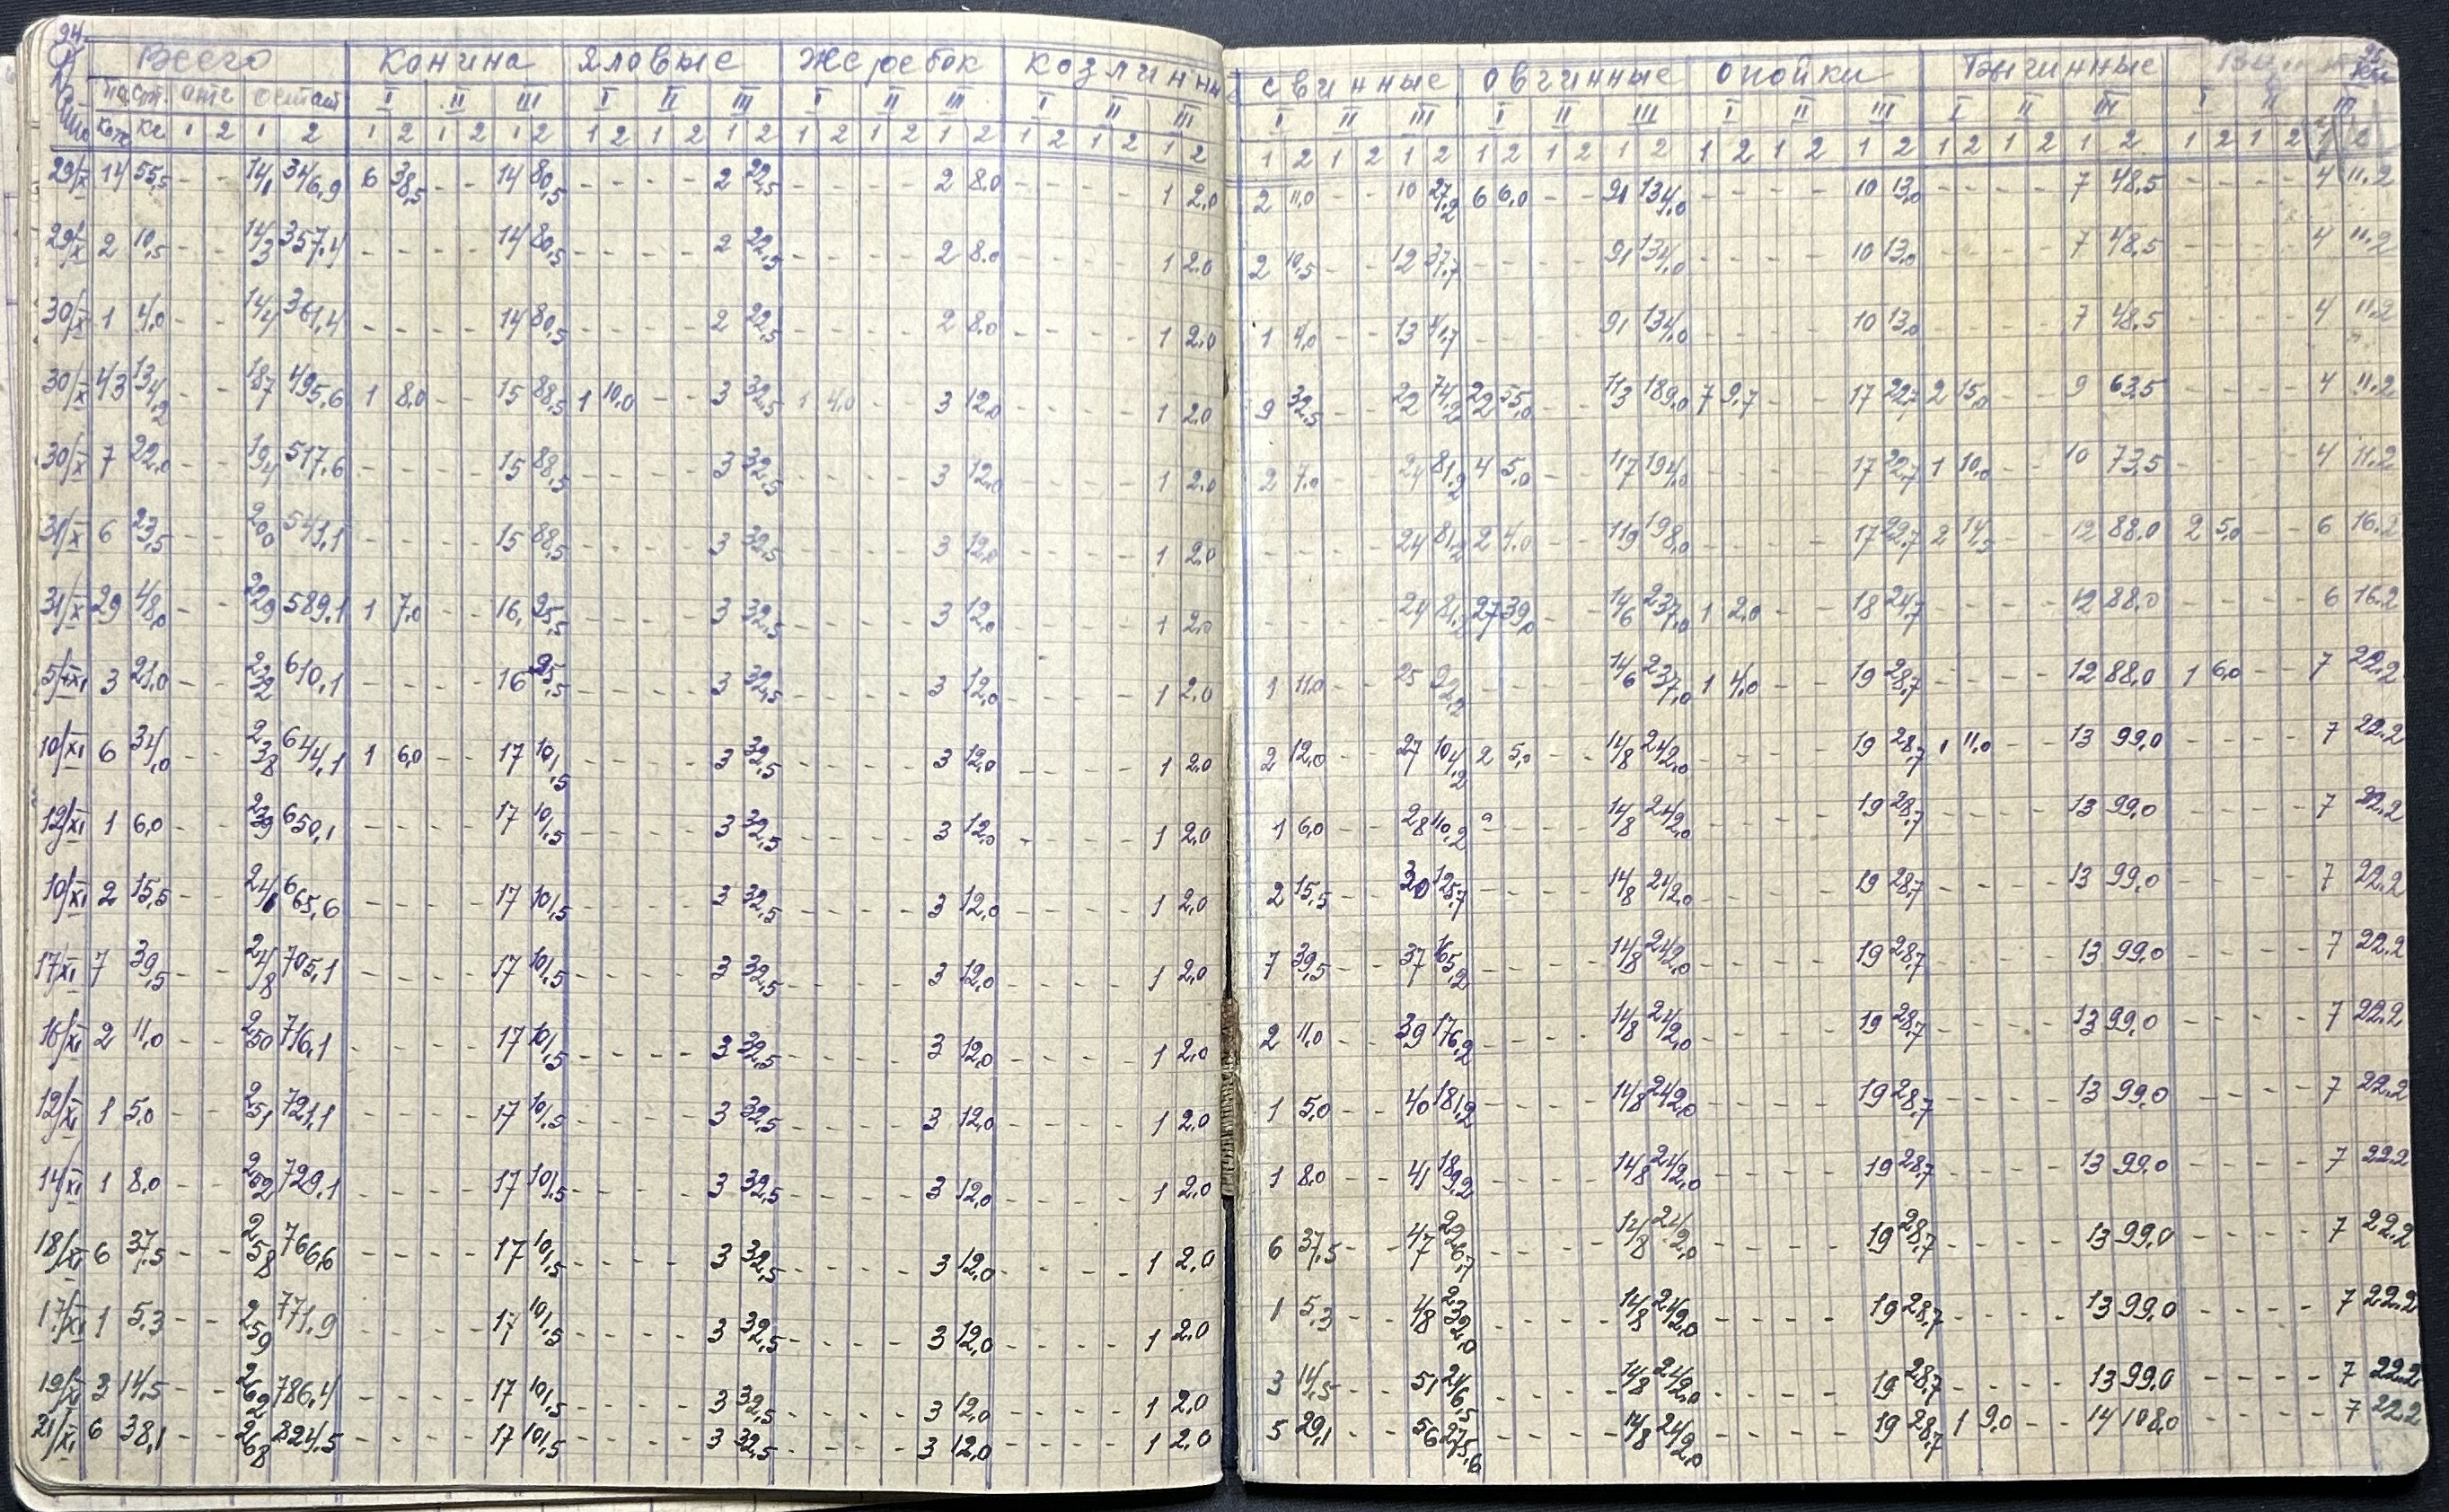 94.
Всего Конина Яловые Жеребок Козлинны
пост. отп остат I II III I II III I II III I II III
кол кг 1 2 1 2 1 2 1 2 1 2 1 2 1 2 1 2 1 2 1 2 1 2 1 2 1 2 1 2
29/X 14 55,5 14/1 346,9 6 38,5 - - 14 80,5 - - - - 2 22,5 - - - - 2 8.0 - - - - 1 2.0
29/X 2 10,5 - - 14/3 357.4 - - - - 14 80,5 - - - - 2 22,5 - - - - 2 8.0 - - - - 1 2.0
30/X 1 4,0 - - 14/4 361,4 - - - - 14 80,5 - - - - 2 22,5 - - - - 2 8.0 - - - - 1 2.0
30/X 43 134,2 - - 187 495,6 1 8,0 - - 15 88,5 1 10,0 - - 3 32,5 1 4,0 - - 3 12,0 - - - - 1 2.0
30/X 7 22,0 - - 194 517,6 - - - - 15 88,5 - - - - 3 32,5 - - - - 3 12,0 - - - - 1 2.0
31/X 6 23,5 - - 200 541,1 - - - - 15 88,5 - - - - 3 32,5 - - - - 3 12,0 - - - - 1 2.0
31/X 29 48,0 - - 229 589,1 1 7,0 - - 16, 95,5 - - - - 3 32,5 - - - - 3 12,0 - - - - 1 2.0
5/XI 3 21,0 - - 232 610,1 - - - - 16 95,5 - - - - 3 32,5 - - - - 3 12,0 - - - - 1 2.0
10/XI 6 34,0 - - 238 644,1 1 6,0 - - 17 101,5 - - - - 3 32,5 - - - - 3 12,0 - - - - 1 2.0
12/XI 1 6,0 - - 239 650,1 - - - - 17 101,5 - - - - 3 32,5 - - - - 3 12,0 - - - - 1 2.0
10/XI 2 15,5 - - 241 665,6 - - - - 17 101,5 - - - - 3 32,5 - - - - 3 12,0 - - - - 1 2.0
17/XI 7 39,5 - - 248 705,1 - - - - 17 101,5 - - - - 3 32,5 - - - - 3 12,0 - - - - 1 2.0
16/XI 2 11,0 - - 250 716,1 - - - - 17 101,5 - - - - 3 32,5 - - - - 3 12,0 - - - - 1 2.0
12/XI 1 5,0 - - 251 721,1 - - - - 17 101,5 - - - - 3 32,5 - - - - 3 12,0 - - - - 1 2.0
14/XI 1 8,0 - - 252 729,1 - - - - 17 101,5 - - - - 3 32,5 - - - - 3 12,0 - - - - 1 2.0
18/XI 6 37,5 - - 258 766,6 - - - - 17 101,5 - - - - 3 32,5 - - - - 3 12,0 - - - - 1 2.0
17/XI 1 5,3 - - 259 771,9 - - - - 17 101,5 - - - - 3 32,5 - - - - 3 12,0 - - - - 1 2.0
19/XI 3 14,5 - - 262 786,4 - - - - 17 101,5 - - - - 3 32,5 - - - - 3 12,0 - - - - 1 2.0
21/XI 6 38,1 - - 268 824,5 - - - - 17 101,5 - - - - 3 32,5 - - - - 3 12,0 - - - - 1 2.0
свинные овчинные опойки Бычинные
I II III I II III I II III I II III I II III
1 2 1 2 1 2 1 2 1 2 1 2 1 2 1 2 1 2 1 2 1 2 1 2 1 2 1 2 1 2
2 11,0 - - 10 27,2 6 6,0 - - 91 134,0 - - - - 10 13,0 - - - - 7 48,5 - - - - 4 11.2
2 10,5 - - 12 37,7 - - - - 91 134,0 - - - - 10 13,0 - - - - 7 48,5 - - - - 4 11.2
1 4,0 - - 13 41,7 - - - - 91 134,0 - - - - 10 13,0 - - - - 7 48,5 - - - - 4 11.2
9 32,5 - - 22 74,2 22 55,0 - - 113 189,0 7 9,7 - - 17 22,7 2 15,0 - - 9 63,5 - - - - 4 11.2
2 7,0 - - 24 81,2 4 5,0 - - 117 194,0 - - - - 17 22,7 1 10,0 - - 10 73,5 - - - - 4 11.2
- - - - 24 81,2 2 4,0 - - 119 198,0 - - - - 17 22,7 2 14,5 - - 12 88.0 2 5,0 - - 6 16.2
- - - - 24 81,2 27 39,0 - - 146 237,0 1 2,0 - - 18 24,7 - - - - 12 88.0 - - - - 6 16.2
1 11,0 - - 25 92,2 - - - - 146 237,0 1 4,0 - - 19 28,7 - - - - 12 88,0 1 6,0 - - 7 22.2
2 12,0 - - 27 104,2 2 5,0 - - 148 242,0 - - - - 19 28,7 1 11,0 - - 13 99,0 - - - - 7 22.2
1 6,0 - - 28 110,2 - - - - 148 242,0 - - - - 19 28,7 - - - - 13 99,0 - - - - 7 22.2
2 15,5 - - 30 125,7 - - - - 148 242,0 - - - - 19 28,7 - - - - 13 99,0 - - - - 7 22.2
7 39,5 - - 37 165,2 - - - - 148 242,0 - - - - 19 28,7 - - - - 13 99,0 - - - - 7 22.2
2 11,0 - - 39 176,2 - - - - 148 242,0 - - - - 19 28,7 - - - - 13 99,0 - - - - 7 22.2
1 5,0 - - 40 181,2 - - - - 148 242,0 - - - - 19 28,7 - - - - 13 99,0 - - - - 7 22.2
1 8,0 - - 41 189,2 - - - - 148 242,0 - - - - 19 28,7 - - - - 13 99,0 - - - - 7 22.2
6 37,5 - - 47 226,7 - - - - 148 242,0 - - - - 19 28,7 - - - - 13 99,0 - - - - 7 22,2
1 5,3 - - 48 232,0 - - - - 148 242,0 - - - - 19 28,7 - - - - 13 99,0 - - - - 7 22.2
3 14,5 - - 51 246,5 - - - - 148 242,0 - - - - 19 28,7 - - - - 13 99,0 - - - - 7 22.2
5 29,1 - - 56 275,6 - - - - 148 242,0 - - - - 19 28,7 1 9,0 - - 14 108,0 - - - - 7 22.2